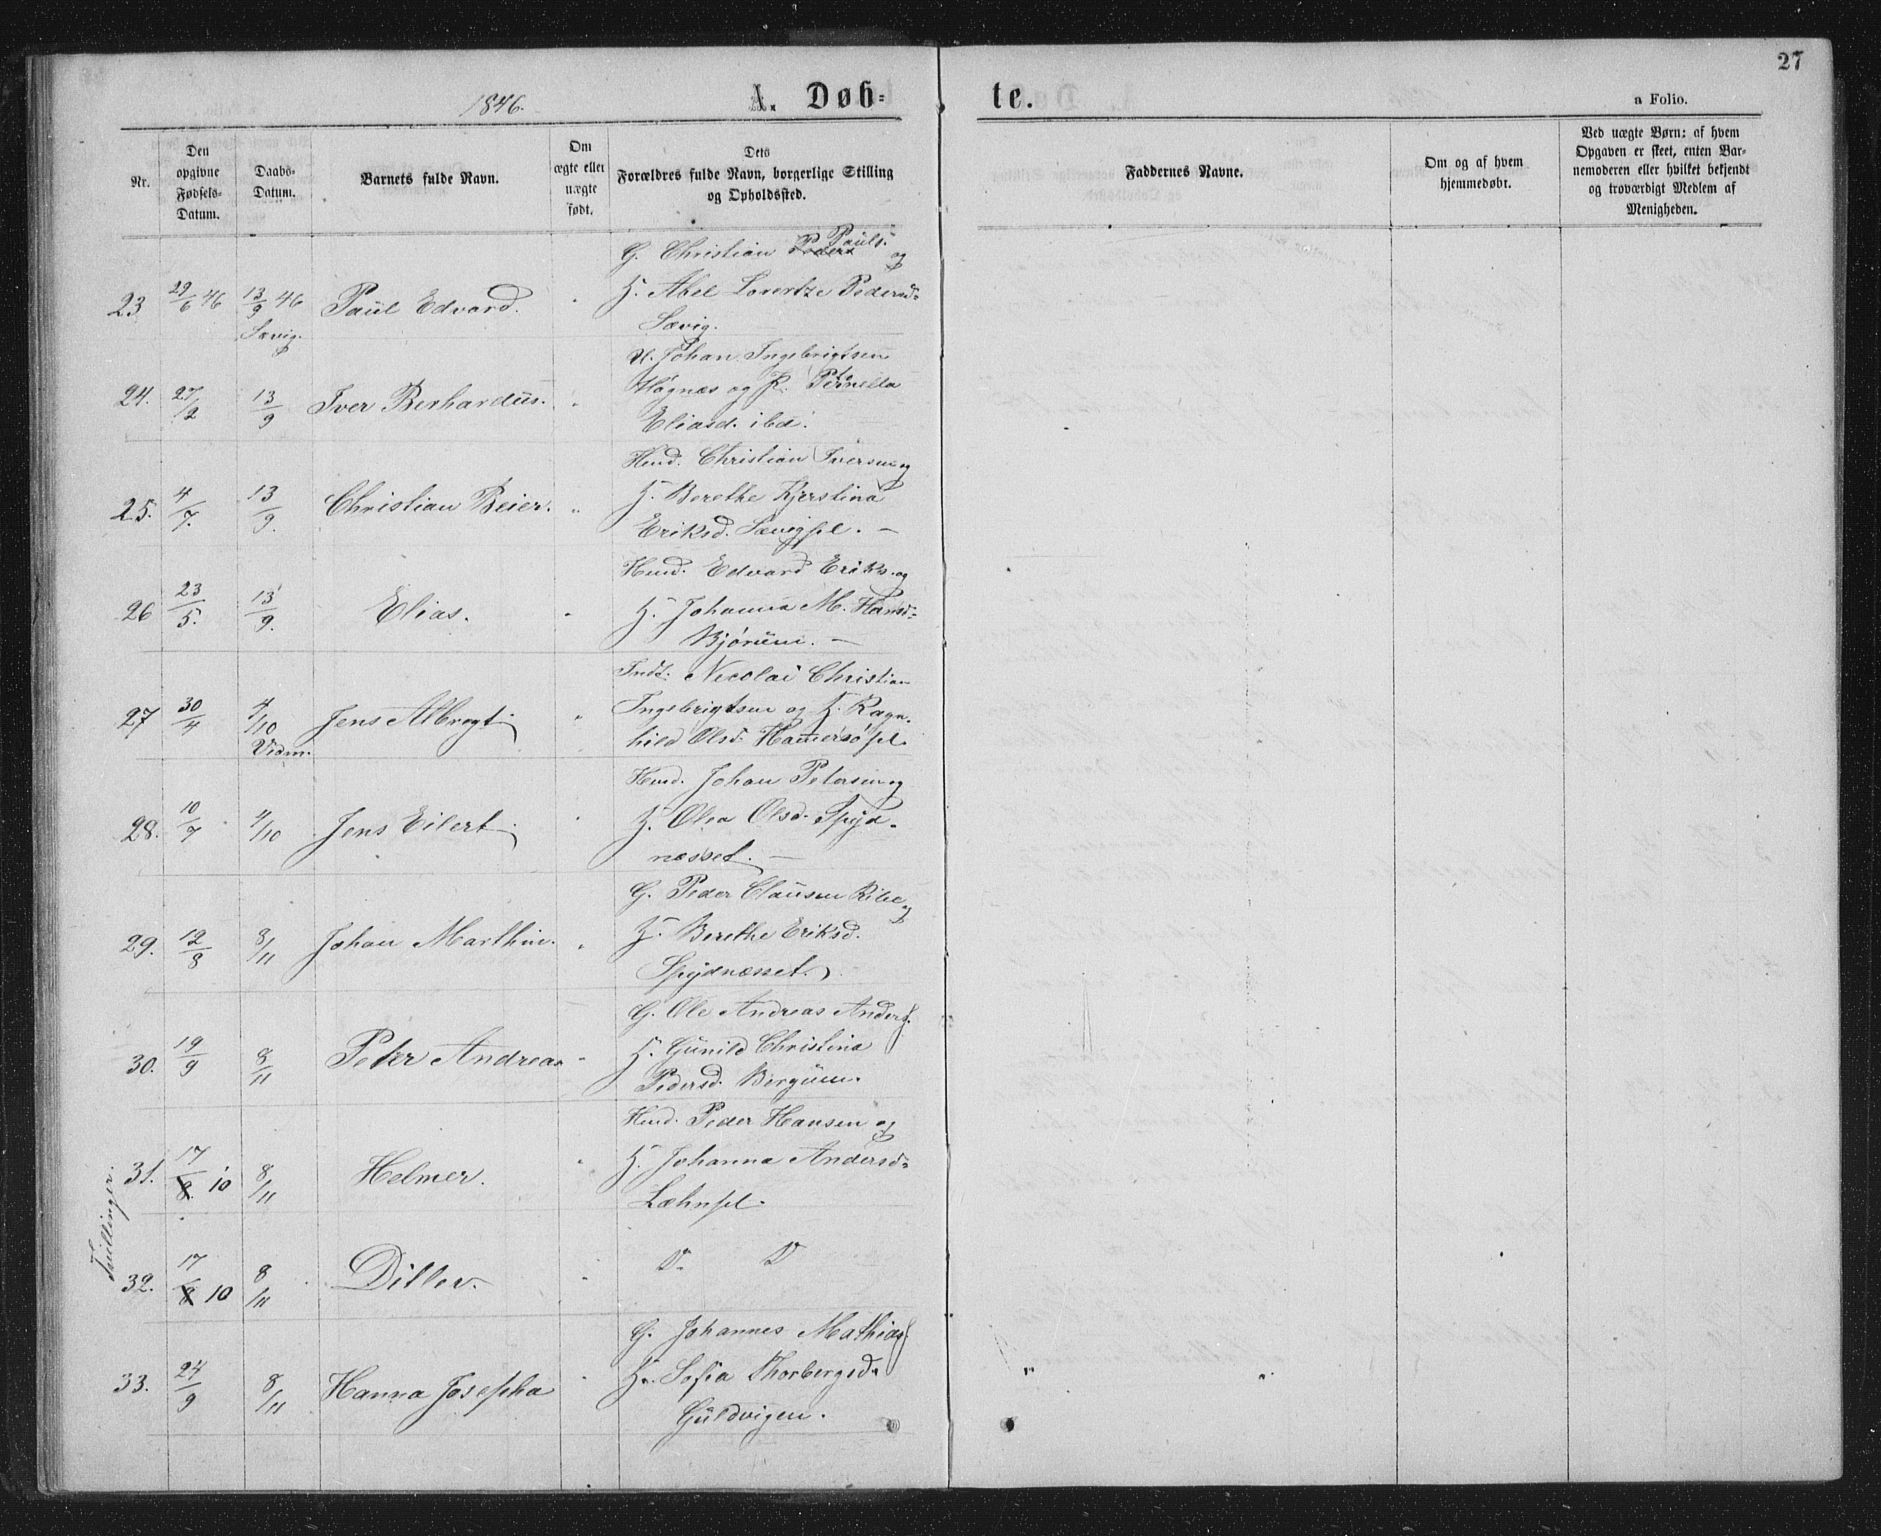 27
1846.
A. Døb-
te.
a Folio.
Nr.
Den
opgivne
Fødsels-
Datum.
Daabs-
Datum.
Barnets fulde Navn.
Om
ægte eller
uægte
født.
Dets
Forældres fulde Navn, borgerlige Stilling
og Opholdssted.
Faddernes Navne.
Om og af hvem
hjemmedøbt.
Ved uægte Børn: af hvem
Opgaven er skeet, enten Bar-
nemoderen eller hvilket bekjendt
og troværdigt Medlem af
Menigheden.
G. Christian Peders Pauls. og
23 29/6 46 13/9 46 Paul Edvard. H. Abel Lorentze Pedersd.
Sævig. Sævig.
U. Johan Ingebrigtsen
24. 27/2 13/9 Iver Berhardus. Høgnæs og P. Pernella
Eliasd. ibd.
Huusd. Christian Iversen og
25. 4/7. 13/9. Christian Beier. H. Berethe Kjerstina
Eriksd. Sævigpl. —
Huusd. Edvard Eriks. og
26 23/5. 13/9. Elias. H. Johanna M. Hansd.
Bjørum. —
Indt. Nicolai Christian
27 30/4 4/10 Jens Albregt. Ingebrigtsen og H. Ragn-
Vidm. hild Olsd. Hammersøpl.
Huusd. Johan Petersen og
28. 10/7 4/10 Jens Eilert. H. Olea Olsd. Spyd-
næsset. —
G. Peder Clausen Ribe og
29. 12/8 8/11 Johan Marthin. H. Berethe Eriksd.
Spydnæsset.
G. Ole Andreas Anders.
30. 19/9 8/11 Peter Andreas H. Gunild Christina
Pedersd. Bergum.
Huusd. Peder Hansen og
31. 17/8. 10 8/11 Helmer. H. Johanna Andersd.
Læhnpl.
Tvillinger.
32. 17/8 10 8/11 Ditlev. D. D
G. Johannes Mathias
33. 24/9 8/11 Hanna Josepha H. Sofia Thorbergsd.
Guldvigen.